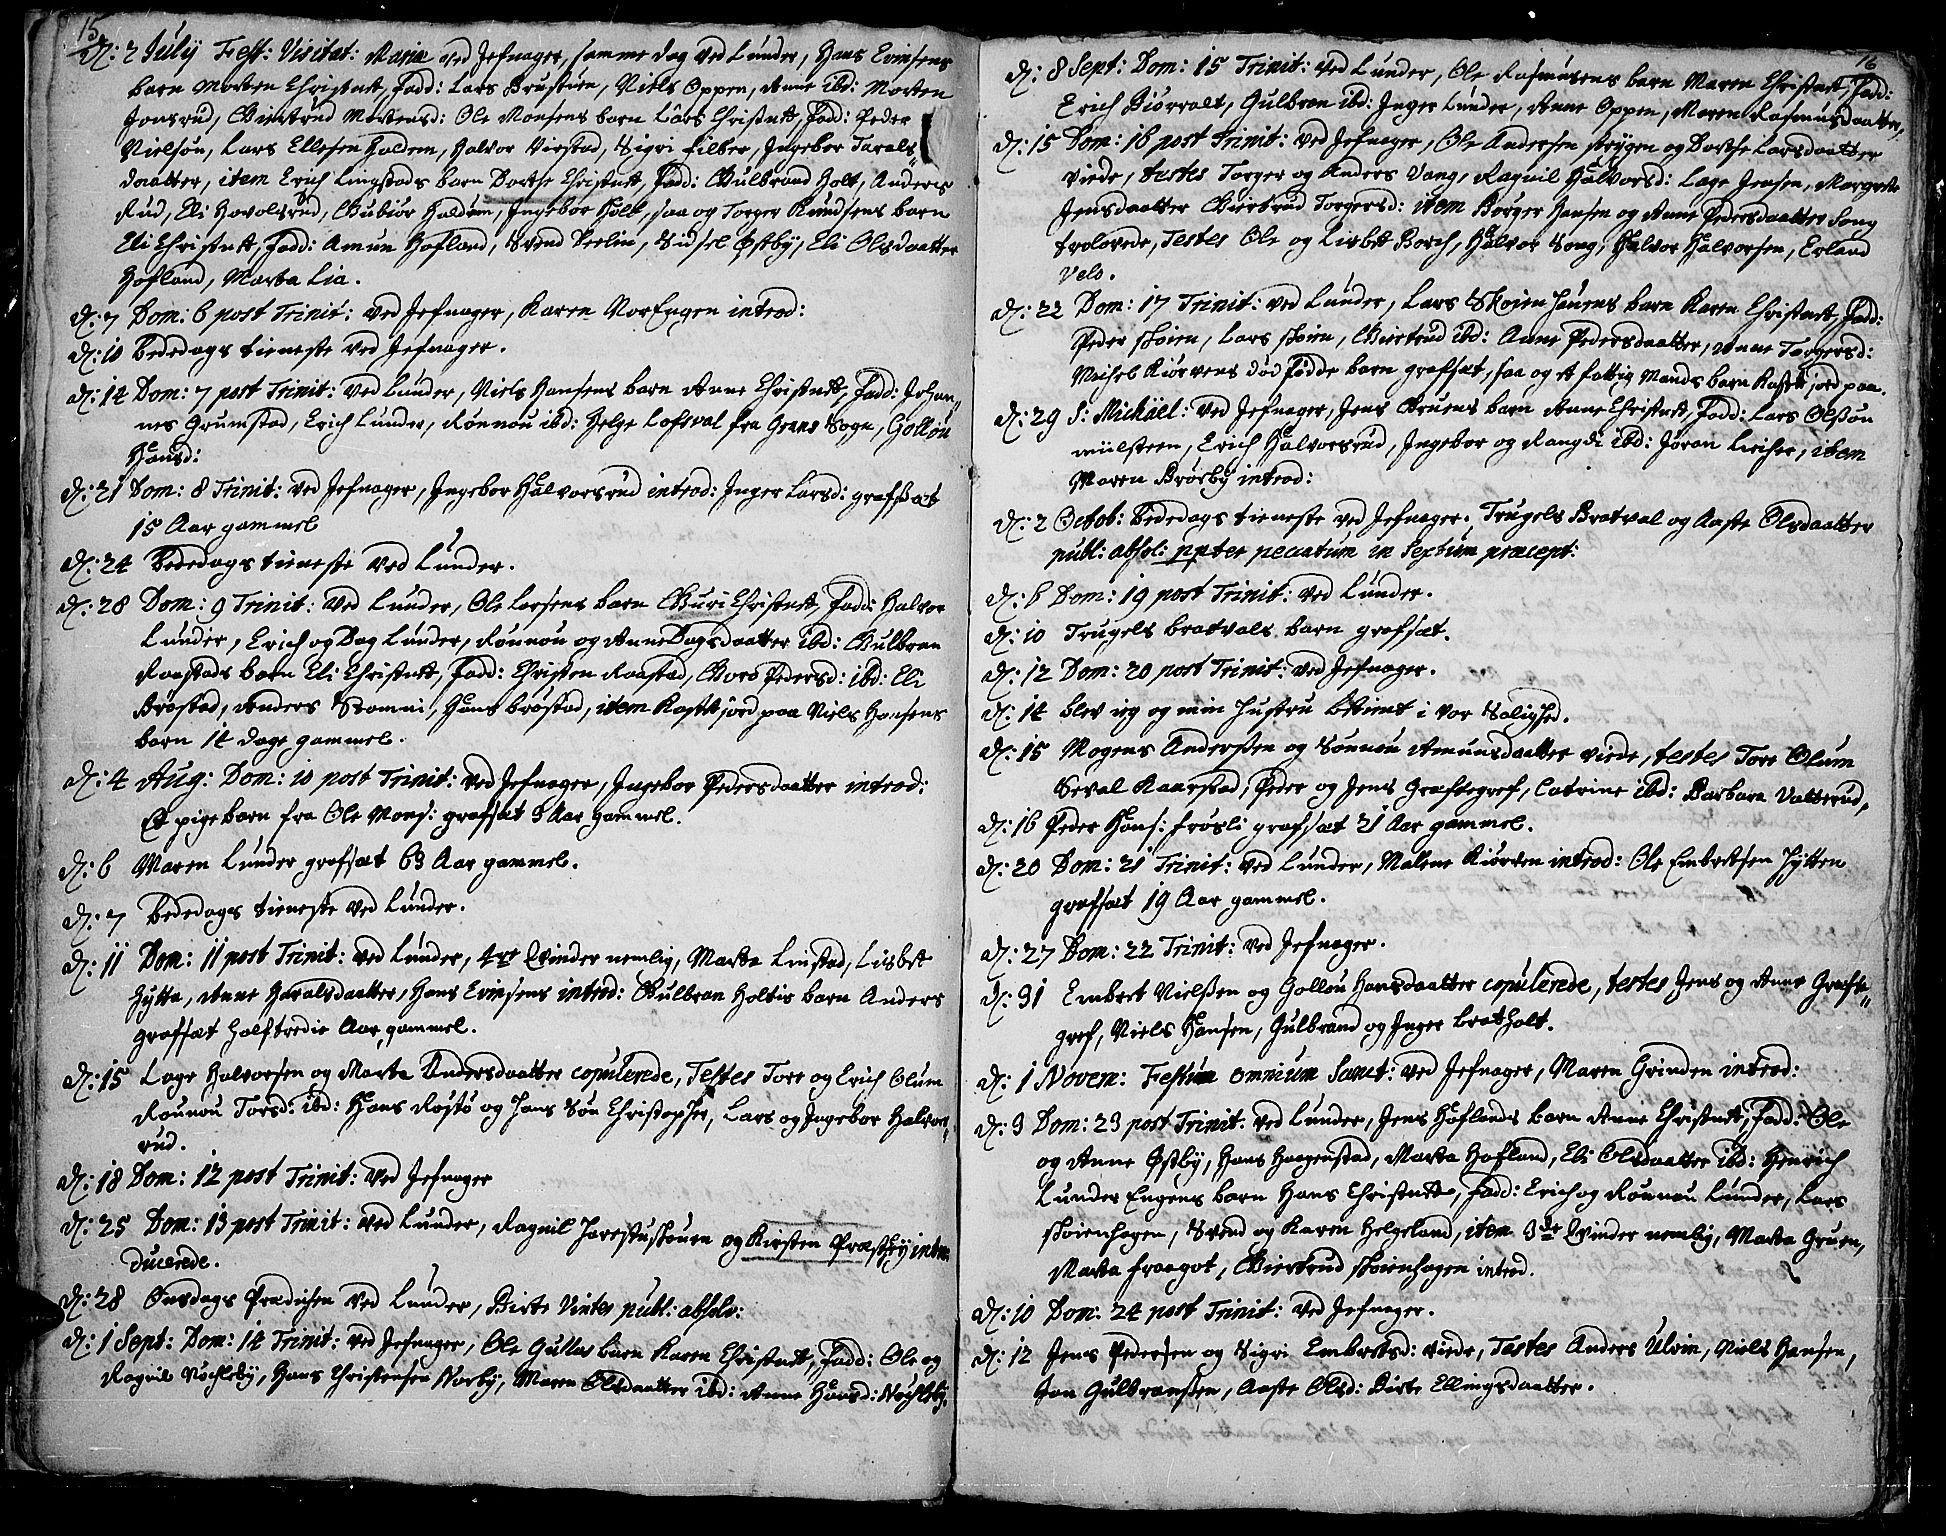 15
D: 2 Julÿ Fest: Visitat: Mariæ ved Jefnager, samme dag ved Lunder, Hans Evinsens
barn Morten Christnet, Fadd: Lars Brustuen, Niels Oppen, Anne ibd: Morten
Jonsrud, Giertrud Mortensd: Ole Monsens barn Lars Christnet, Fadd: Peder
Nielsøn, Lars Ellefsen Haldem, Halvor Virstad, Sigri Filber, Ingebor Tarals"
daatter, item Erich Lingstads barn Dorthe Christnet, Fadd: Gulbrand Holt, Anders
Rud, Eli Havolsrud, Gubiør Haldum, Ingebor Holt, saa og Torger Knudsens barn
Eli Christnet, Fadd: Amun Hofland, Svend Veelin, Sidsel Østbÿ, Eli Olsdaatter
Hofland, Marta Lia.
D: 7 Dom: 6 post Trinit: ved Jefnager, Karen MorEngen introd:
D: 10 Bededags tieneste ved Jefnager.
D: 14 Dom: 7 post Trinit: ved Lunder, Niels Hansens barn Anne Christnet, Fadd: Johan"
nes Grumstad, Erich Lunder, Rønnou ibd: Helge Lofsval fra Grans Sogn, Golløu
Hansd:
D: 21 Dom: 8 Trinit: ved Jefnager, Ingebor Halvorsrud introd: Inger Larsd: grafsæt
15 Aar gammel
D: 24 Bededags tieneste ved Lunder.
D: 28 Dom: 9 Trinit: ved Lunder, Ole Larsens barn Guri Christnet, Fadd: Halvor
Lunder, Erich og Dag Lunder, Rønnou og Anne Dagsdaatter ibd: Gulbran
Raastads barn Eli Christnet, Fadd: Christen Raastad, Goro Pedersd: ibd: Eli
Brøstad, Anders Ramni, Hans Brøstad, item Kastet jord paa Niels Hansens
barn 14 dage gammel.
D: 4 Aug: Dom: 10 post Trinit: ved Jefnager, Ingebor Pedersdaatter introd:
Et pigebarn fra Ole Mons: grafsæt 8 Aar gammel.
D: 6 Maren Lunder grafsæt 63 Aar gammel.
D: 7 Bededags tieneste ved Lunder.
D: 11 Dom: 11 post Trinit: ved Lunder, 4re Qvinder nemlig, Marta Linstad, Lisbet
Hytta, Anne Haralsdaatter, Hans Evinsens introd: Gulbran Holtis barn Anders
grafsæt halftredie Aar gammel.
D: 15 Lage Halvorsen og Marta Andersdaatter copulerede, Testes Tore og Erich Olum
Rønnou Torsd: ibd: Hans Røstø og hans Søn Christopher, Lars og Ingebor Halvors"
rud.
D: 18 Dom: 12 post Trinit: ved Jefnager
D: 25 Dom: 13 post Trinit: ved Lunder, Ragnil Harestuskouen og Kirsten Præsthÿ intro
ducerede.
D: 28 Onsdags Prædichen ved Lunder, Birte Vintes publ: absolv:
D: 1 Sept: Dom: 14 Trinit: ved Jefnager, Ole Gullas barn Karen Christnet, Fadd: Ole og
Ragnil Nøchlebÿ, Hans Christensen Norbÿ, Maren Olsdaatter ibd: Anne Hansd: Nøchlebÿ.
16
D: 8 Sept: Dom: 15 Trinit: ved Lunder, Ole Rasmusens barn Maren Christnet, Fadd:
Erich Biørvalt, Gulbran ibd: Inger Lunder, Anne Oppen, Maren Rasmusdaatter,
D: 15 Dom: 16 post Trinit: ved Jefnager, Ole Andersen strÿgen og Dorthe Larsdaatter
viede, testes Torger og Anders Vang, Ragnil Halvorsd: Lage Jensen, Margrete
Jensdaatter Giertrud Torgersd: item Børger Hansen og Anne Pedersdaatter Song
trolovede, Testes Ole og Lisbet Borch, Halvor Song, Halvor Halvorsen, Erland
Velo.
D: 22 Dom: 17 Trinit: ved Lunder, Lars Skoien Hauens barn Karen Christnet, Fadd:
Peder skoien, Lars skoien, Giertrud ibd: Anne Pedersdaatter, Anne Torgersd:
Michel Kiørvens død fødde barn grafsæt, saa og et fattig Mands barn Kastet jord paa.
D: 29 S: Michäel: ved Jefnager, Jens Gruens barn Anne Christnet, Fadd: Lars Olsøn
miilsteen, Erich Halvorsrud, Ingebor og Rangdi ibd: Joran Lericher, item
Maren Brørbÿ introd:
D: 2 Octob: Bededags tieneste ved Jefnager. Trugels Bratval og Aaste Olsdaatter
publ: absol: ppter peccatum in Septum præcept:
D: 6 Dom: 19 post Trinit: ved Lunder.
D: 10 Trugels bratvals barn grafsæt.
D: 12 Dom: 20 post Trinit: ved Jefnager.
D: 14 blev ieg og min hustru betient i vor Salighed.
D: 15 Mogens Andersen og Rønnou Amunsdaatter viede, testes Tore Olum
Seval Kaarstad, Peder og Jens Græftegref, Catrine ibd: Barbara Vatterud,
D: 16 Peder Hans: frøsli grafsæt 21 Aar gammel.
D: 20 Dom: 21 Trinit: ved Lunder, Malene Kiørven introd: Ole Embretsen Hÿtten
grafsæt 19 Aar gammel.
D: 27 Dom: 22 Trinit: ved Jefnager.
D: 31 Embret Nielsen og Golløu Hansdaatter copulerede, testes Jens og Anne Græfte"
gref, Niels Hansen, Gulbrand og Inger Bratholt.
D: 1 Novem: Festum omnium Sanct: ved Jefnager, Maren Grinden introd:
D: 3 Dom: 23 post Trinit: ved Lunder, Jens Hoflands barn Anne Christnet, Fadd: Ole
og Anne Østbÿ, Hans Haagenstad, Marta Hofland, Eli Olsdaatter ibd: Henrich
Lunder Engens barn Hans Christnet, Fadd: Erich og Rønnou Lunder, Lars
skoienhagen, Svend og Karen Helgeland, item 3de Qvinder nemlig, Marta Gruen,
Marta fraagot, Giertrud skoienhagen introd.
D: 10 Dom: 24 post Trinit: ved Jefnager.
D: 12 Jens Pedersen og Sigri Embretsd: viede, Testes Anders Ulvin, Niels Hansen,
Jan Gulbransen, Aaste Olsd: Birte Ellingsdaatter.